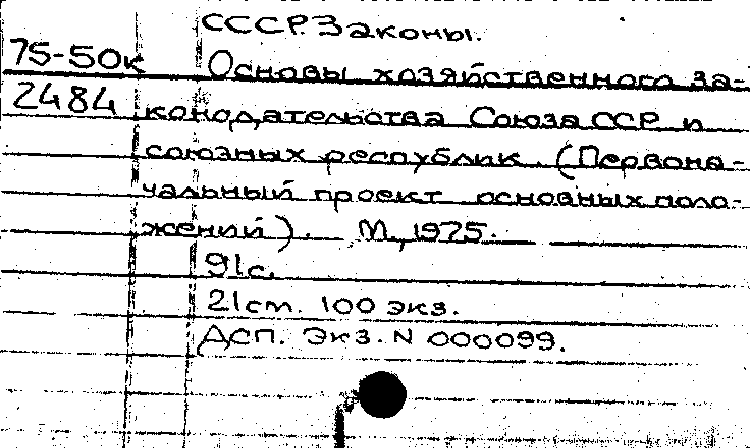 СССР. Законы.
75-50к Основы хозяйственного за-
2484 конодательства Союза ССР и
союзных республик. (Первона-
чальный проект основных поло-
жений). М., 1975.
91с.
21 cm. 100 экз.
ДСП. Экз. N 000099.